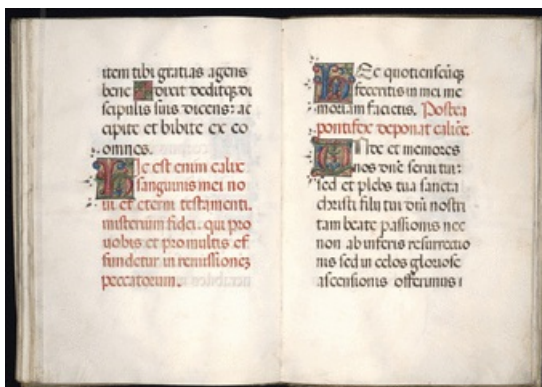 item tibi gratias agens
bene dixit deditq; di
scipulis suis dicens: ac
cipite et bibite ex eo
omnes.
Hic est enim calix
sanguinis mei no
ui et eterni testamenti.
misterium fidei. qui pro
uobis et pro multis ef
fundetur in remissionez
peccatorum.
Hec quotienscuq;
feceritis in mei me
moriam facietis. Postea
pontifex deponat calice.
Unde et memores
nos dne serui tui:
sed et plebs tua sancta
christi filii tui dni nostri
tam beate passionis nec
non ab inferis resurrectio
nis sed in celos gloriose
ascensionis offerimus